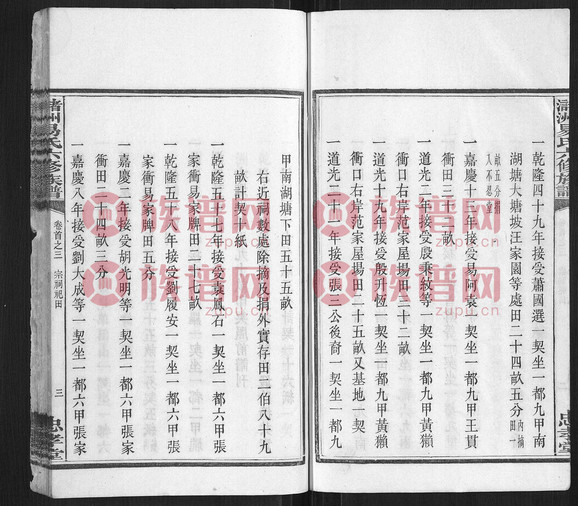 一乾隆四十九年接受蕭國選一契坐一都九甲南
湖塘大塘坡汪家園等處田二十四畝五分內摘田一
畝五分捐
入不忍堂
一嘉慶十三年接受易阿袁一契坐一都九甲王貫
衝田三十二畝
一道光二年接受殷乘紋等一契坐一都九甲黃獺
衝口右岸范家屋場田二十二畝
一道光十九年接受殷升恆一契坐一都九甲黃獺
衝口右岸范家屋場田二十五畝又基地一契
一道光二十一年接受張三公後裔一契坐一都九
甲南湖塘下田五十五畝
右近祠數處除摘及捐外實存田二伯八十九
畝計契八紙
一乾隆五十七年接受袁鳳石一契坐一都六甲張
家衝易家牌田二十七畝
一乾隆五十八年接受劉履安一契坐一都六甲張
家衝易家牌田五分
一嘉慶二年接受胡光明等一契坐一都六甲張家
衝田二十四畝三分
一嘉慶八年接受劉大成等一契坐一都六甲張家
瀦洲易氏六修族譜
卷首之三 宗祠祀田
三
忠孝堂
瀦洲易氏六修族譜
忠孝堂
族譜网
zupu.cn